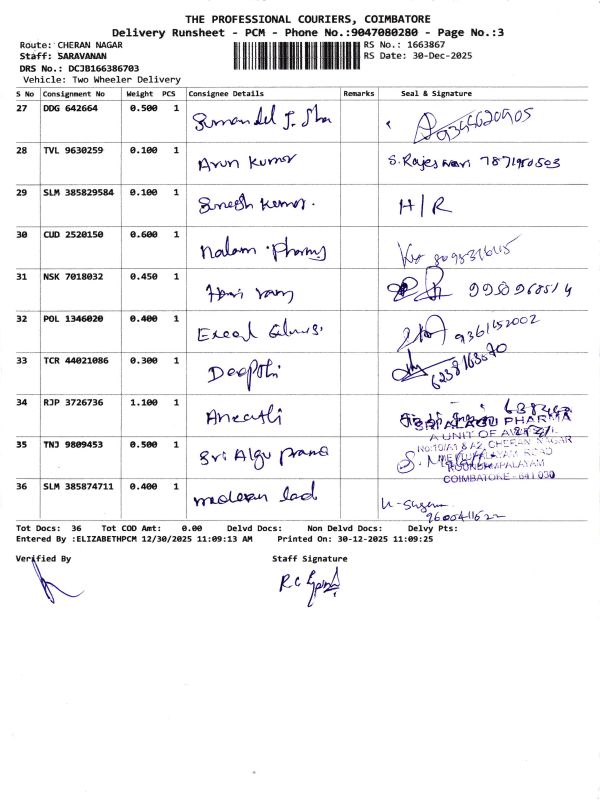 THE PROFESSIONAL COURIERS, COIMBATORE
Delivery Runsheet - PCM - Phone No.:9047080280 - Page No.:3
Route: CHERAN NAGAR RS No.: 1663867
Staff: SARAVANAN RS Date: 30-Dec-2025
DRS No.: DCJB166386703
Vehicle: Two Wheeler Delivery
S No Consignment No Weight PCS Consignee Details Remarks Seal & Signature
27 DDG 642664 0.500 1
28 TVL 9630259 0.100 1 Arun Kumar S. Rajeswari 7871950503
29 SLM 385829584 0.100 1 Suresh Kumar. H/R
30 CUD 2520150 0.600 1 Nalam Pharmy
31 NSK 7018032 0.450 1
32 POL 1346020 0.400 1 Excel 9361152002
33 TCR 44021086 0.300 1 Deepthi 6238163070
34 RJP 3726736 1.100 1
SRI ALAGU PHARMA
A UNIT OF
35 TNJ 9809453 0.500 1 Sri Algu
No:10/A1 & A2, CHERAN NAGAR
ROAD
COIMBATORE - 641 030
36 SLM 385874711 0.400 1
Tot Docs: 36 Tot COD Amt: 0.00 Delvd Docs: Non Delvd Docs: Delvy Pts:
Entered By :ELIZABETHPCM 12/30/2025 11:09:13 AM Printed On: 30-12-2025 11:09:25
Verified By Staff Signature